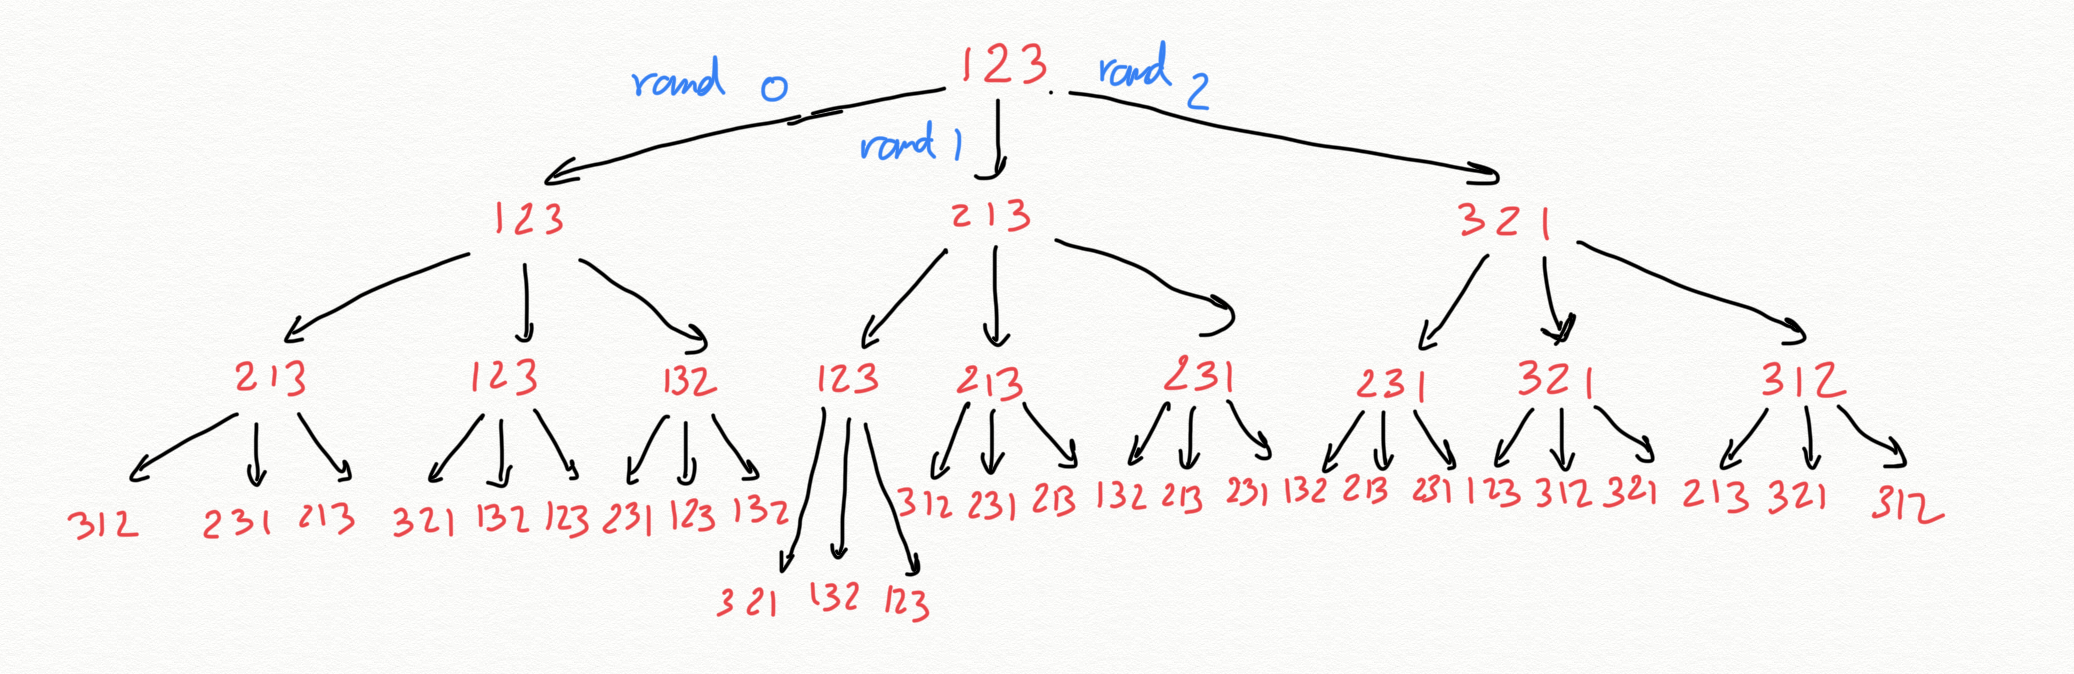 rand 0 123 rand 2
rand 1
123 213 321
213 123 132 123 213 231 231 321 312
312 231 213 321 132 123 231 123 132 312 231 213 132 213 231 132 213 231 123 312 321 213 321 312
321 132 123